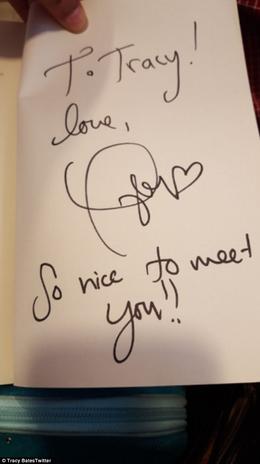 To Tracy!
love,
So nice to meet
you!!
© Tracy Bates/Twitter